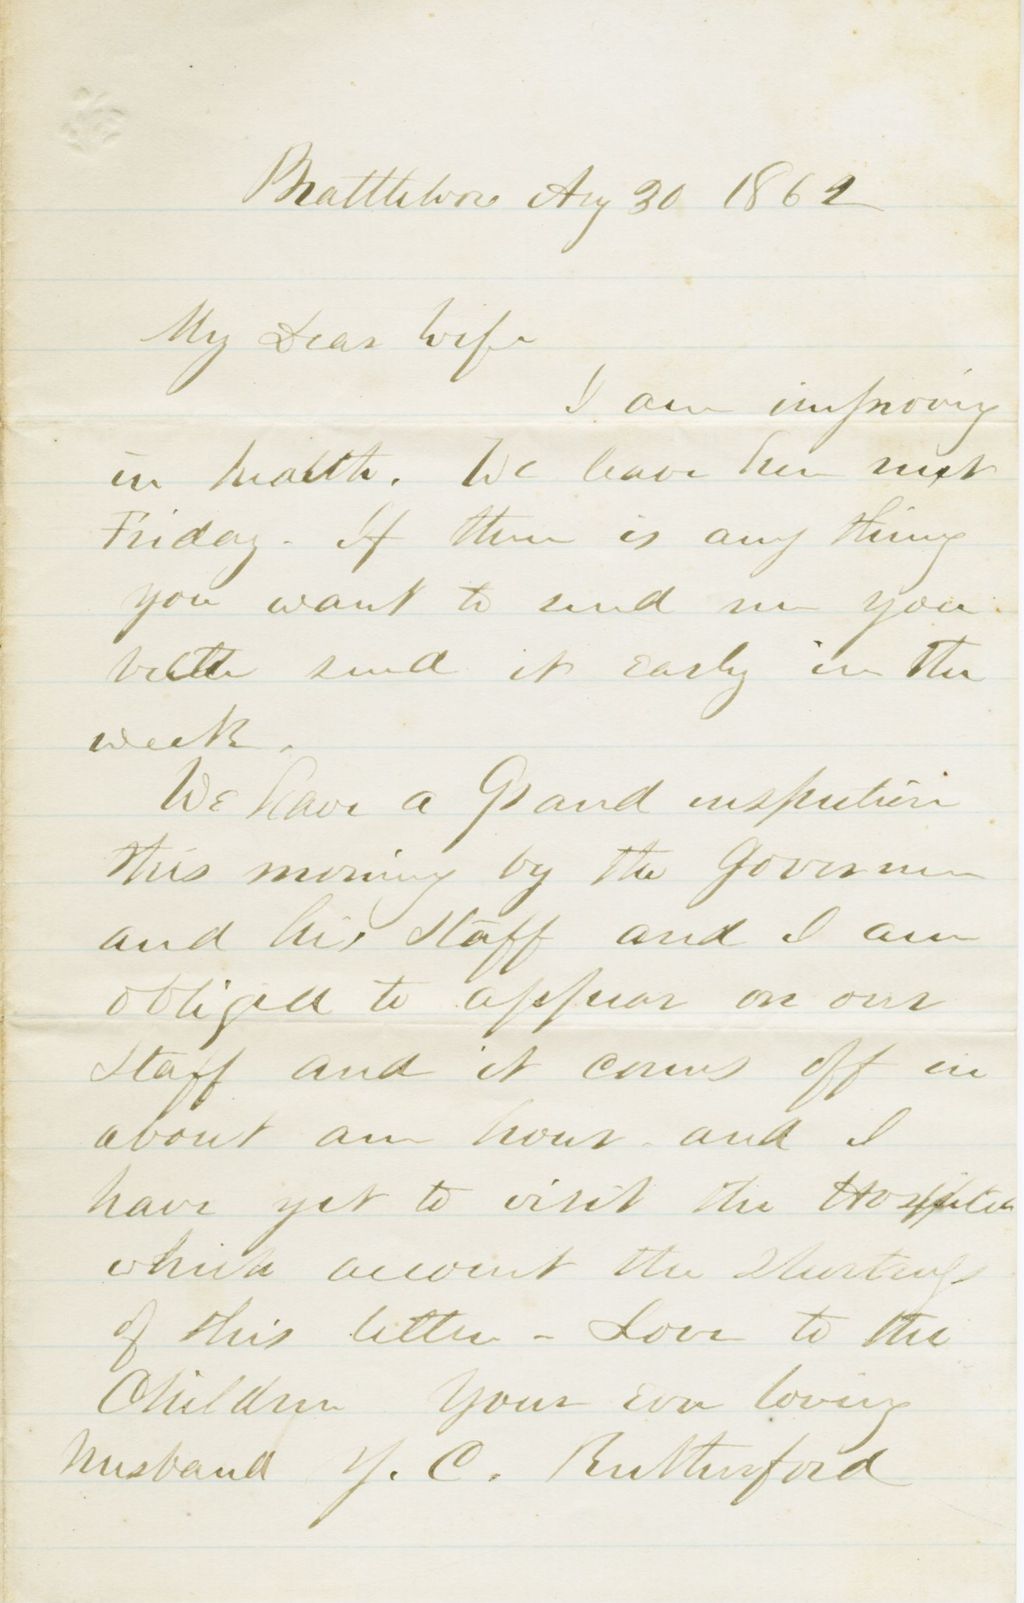 Brattleboro Aug 30 1862
My Dear Wife
I am improving
in health. We leave here next
Friday - If there is any thing
you want to send me you
better send it early in the
week.
We have a Grand inspection
this morning by the Governor
and his Staff and I am
obliged to appear on our
Staff and it comes off in
about an hour - and I
have yet to visit the Hospital
which account the
of this letter - Love to the
Children Your ever loving
husband J. C. Rutherford